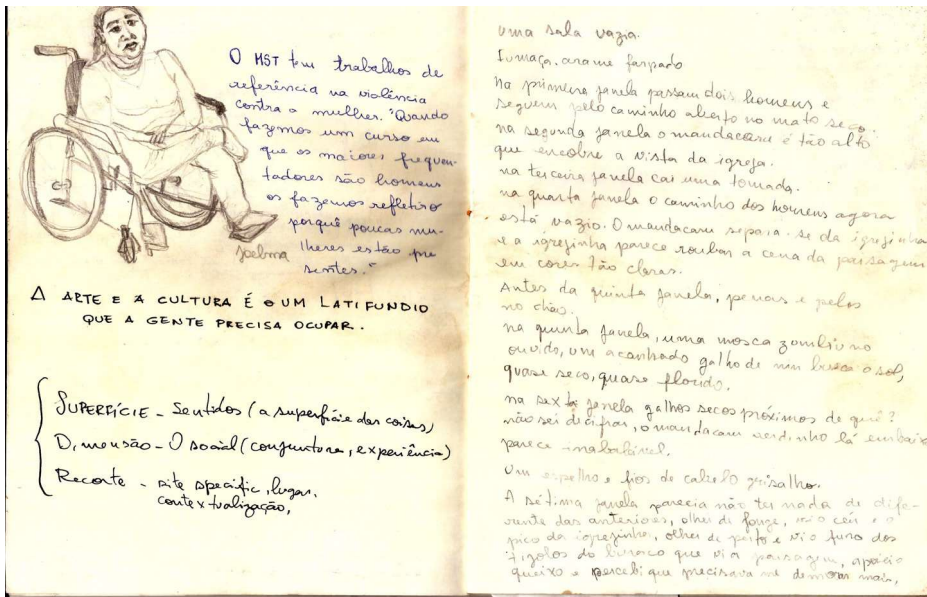 O MST tem trabalhos de
referência na violência
contra a mulher. "Quando
fazemos um curso em
que os maiores frequen-
tadores são homens
os fazemos refletir o
porquê poucas mu-
lheres estão pre
sentes."
Joelma
A ARTE E A CULTURA É UM LATIFUNDIO
QUE A GENTE PRECISA OCUPAR.
SUPERFÍCIE - Sentidos (a superfície das coisas)
Dimensão - O social (conjuntura, experiência)
Recorte - site specific, lugar,
contextualização,
uma sala vazia.
Fumaça, arame farpado
Na primeira janela passam dois homens e
seguem pelo caminho aberto no mato seco.
na segunda janela o mandacaru é tão alto
que encobre a vista da igreja.
na terceira janela cai uma tomada.
na quarta janela o caminho dos homens agora
está vazio. O mandacaru separa-se da igrejinha
e a igrejinha parece roubar a cena da paisagem
em cores tão claras.
Antes da quinta janela, penas e pelos
no chão.
na quinta janela, uma mosca zumbiu no
ouvido, um acanhado galho de nim busca o sol,
quase seco, quase florido.
na sexta janela galhos secos próximos de quê?
não sei decifrar, o mandacaru verdinho lá embaixo
parece inabalável.
Um espelho e fios de cabelo grisalho.
A sétima janela parecia não ter nada de dife-
rente das anteriores, olhei de longe, vi o céu e o
pico da igrejinha, olhei de perto e vi o furo dos
tijolos do buraco que via a paisagem, apoiei o
queixo e percebi que precisava me demorar mais,